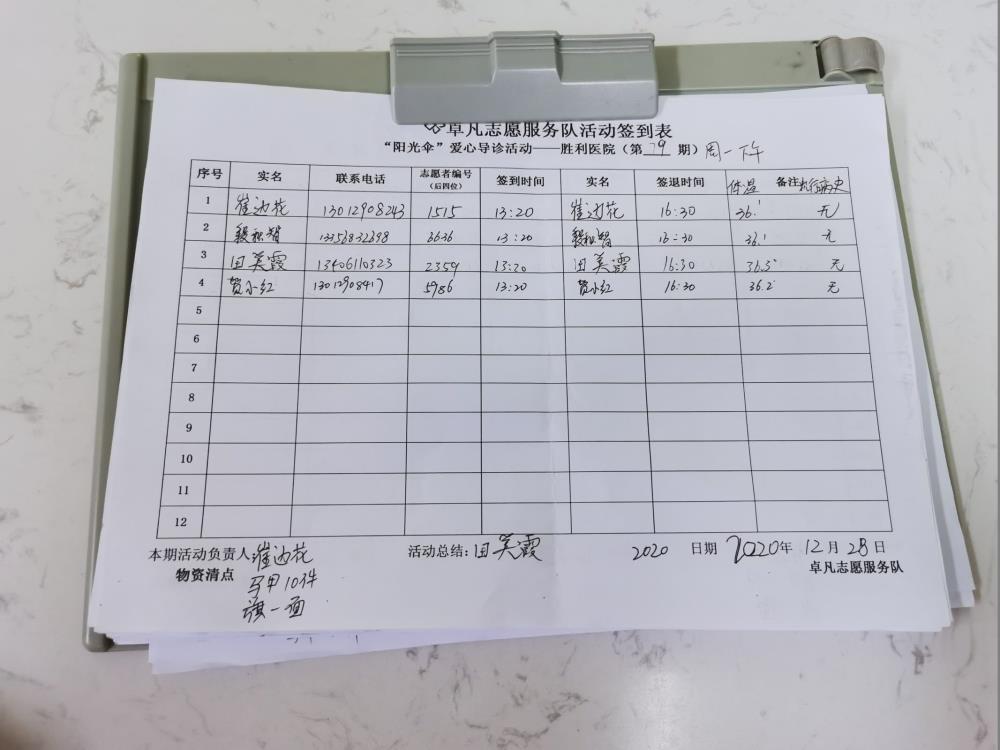 卓凡志愿服务队活动签到表
“阳光伞”爱心导诊活动——胜利医院（第79期）周一下午
序号 实名 联系电话 志愿者编号（后四位） 签到时间 实名 签退时间 体温 备注 旅行病史
1 崔边花 13012908243 1515 13:20 崔边花 16:30 36.1 无
2 1335683 6636 13:20 16:30 36.1 无
3 田美霞 13406110323 2359 13:20 田美霞 16:30 36.5 无
4 贾小红 13012908417 5986 13:20 贾小红 16:30 36.2 无
5
6
7
8
9
10
11
12
本期活动负责人：崔边花 活动总结：田美霞 2020 日期 2020年12月28日
物资清点 卓凡志愿服务队
马甲10件
旗一面